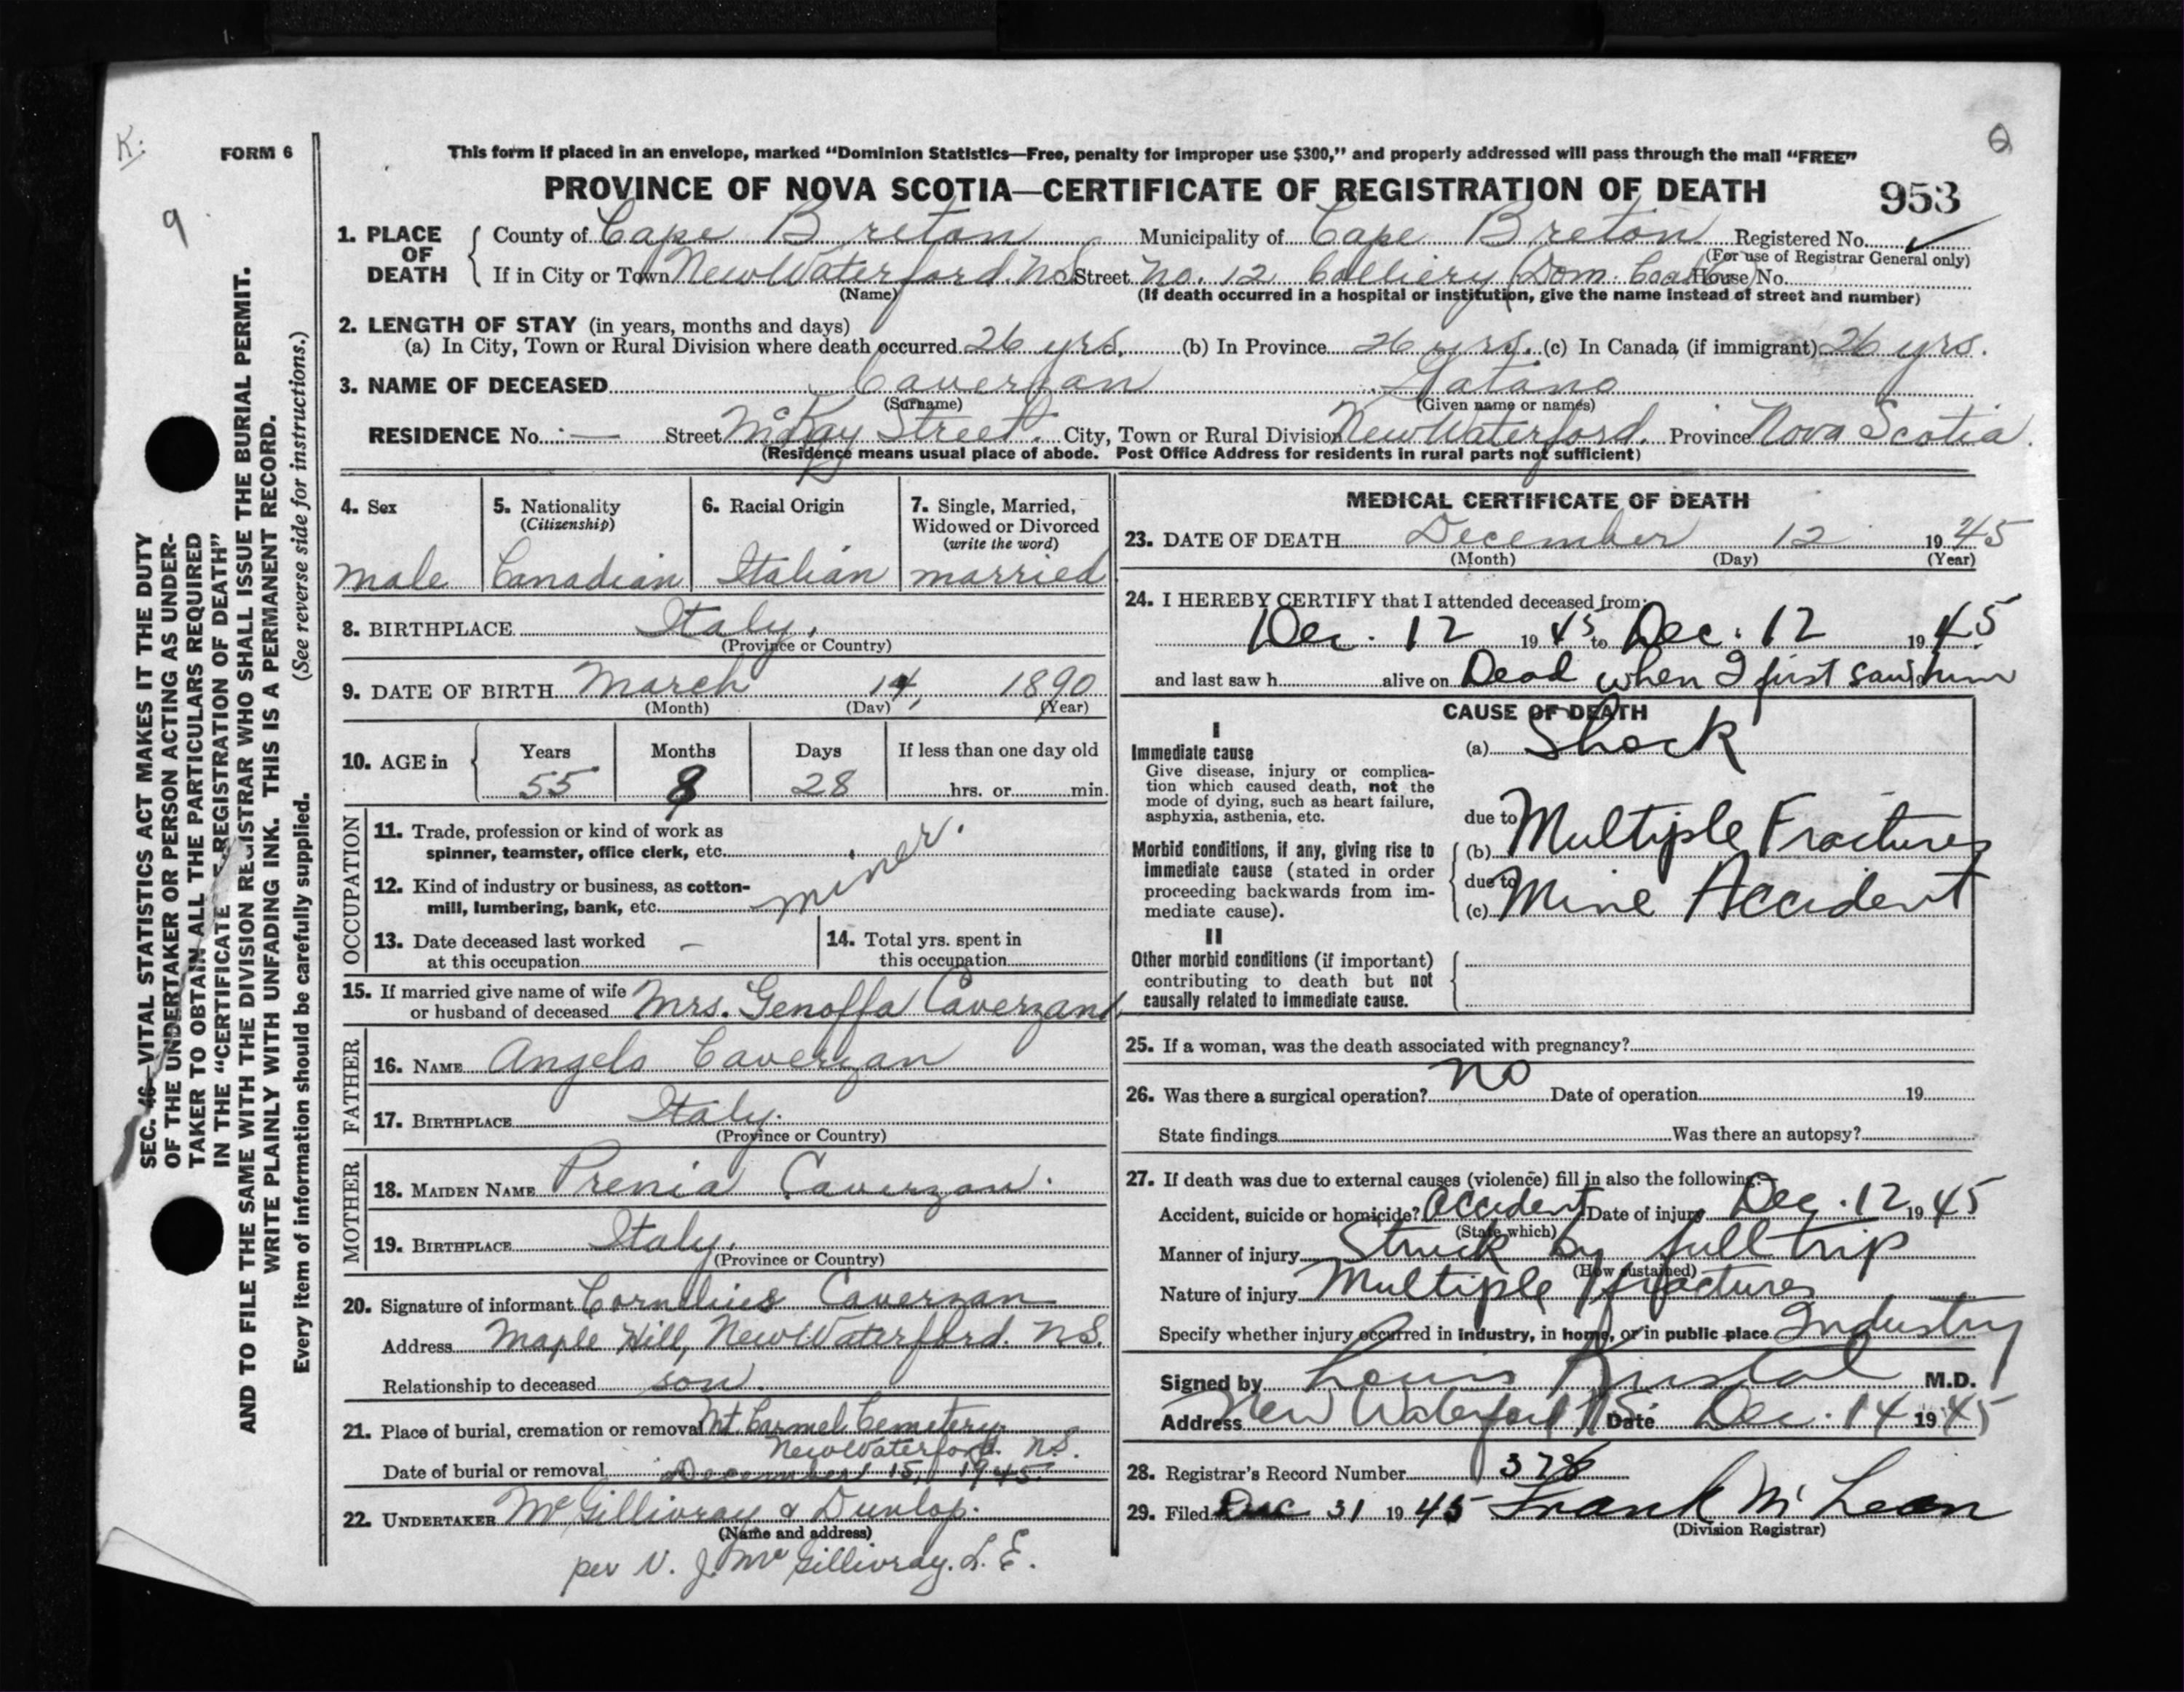 K.
FORM 6
9
This form if placed in an envelope, marked “Dominion Statistics—Free, penalty for improper use $300,” and properly addressed will pass through the mail “FREE”
PROVINCE OF NOVA SCOTIA—CERTIFICATE OF REGISTRATION OF DEATH
953
1. PLACE OF DEATH
County of Cape Breton Municipality of Cape Breton Registered No. ✓
(For use of Registrar General only)
If in City or Town New Waterford. N.S. Street No. 12 Colliery (Dom. Coal Co.) House No.
(Name)
(If death occurred in a hospital or institution, give the name instead of street and number)
2. LENGTH OF STAY (in years, months and days)
(a) In City, Town or Rural Division where death occurred 26 yrs. (b) In Province 26 yrs. (c) In Canada (if immigrant) 26 yrs.
3. NAME OF DECEASED Caverzan Gatano
(Surname) (Given name or names)
RESIDENCE No. — Street McKay Street. City, Town or Rural Division New Waterford. Province Nova Scotia.
(Residence means usual place of abode. Post Office Address for residents in rural parts not sufficient)
4. Sex
male
5. Nationality
(Citizenship)
Canadian
6. Racial Origin
Italian
7. Single, Married,
Widowed or Divorced
(write the word)
married
8. BIRTHPLACE Italy,
(Province or Country)
9. DATE OF BIRTH March 14, 1890
(Month) (Day) (Year)
10. AGE in
Years Months Days If less than one day old
55 8 28 hrs. or min.
OCCUPATION
11. Trade, profession or kind of work as
spinner, teamster, office clerk, etc.
12. Kind of industry or business, as cotton-
mill, lumbering, bank, etc.
miner.
13. Date deceased last worked –
at this occupation
14. Total yrs. spent in
this occupation
15. If married give name of wife
or husband of deceased Mrs. Genoffa Caverzan
FATHER
16. NAME Angelo Caverzan
17. BIRTHPLACE Italy.
(Province or Country)
MOTHER
18. MAIDEN NAME Prenia Caverzan.
19. BIRTHPLACE Italy.
(Province or Country)
20. Signature of informant Cornelius Caverzan
Address Maple Hill, New Waterford. N.S.
Relationship to deceased son.
21. Place of burial, cremation or removal Mt. Carmel Cemetery
New Waterford. N.S.
Date of burial or removal December 15, 1945.
22. UNDERTAKER McGillivray & Dunlop.
(Name and address)
per V. J. McGillivray. L. E.
MEDICAL CERTIFICATE OF DEATH
23. DATE OF DEATH December 12 1945
(Month) (Day) (Year)
24. I HEREBY CERTIFY that I attended deceased from:
Dec. 12 1945 to Dec. 12 1945
and last saw h alive on Dead when I first saw him
CAUSE OF DEATH
I
Immediate cause
Give disease, injury or complica-
tion which caused death, not the
mode of dying, such as heart failure,
asphyxia, asthenia, etc.
(a) Shock
due to
Morbid conditions, if any, giving rise to
immediate cause (stated in order
proceeding backwards from im-
mediate cause).
(b) Multiple Fractures
due to
(c) Mine Accident
II
Other morbid conditions (if important)
contributing to death but not
causally related to immediate cause.
25. If a woman, was the death associated with pregnancy?
26. Was there a surgical operation? no Date of operation 19
State findings Was there an autopsy?
27. If death was due to external causes (violence) fill in also the following:—
Accident, suicide or homicide? Accident Date of injury Dec. 12 1945
(State which)
Manner of injury Struck by full trip
(How sustained)
Nature of injury Multiple fractures
Specify whether injury occurred in industry, in home, or in public place Industry
Signed by Louis M.D.
Address New Waterford N.S. Date Dec. 14 1945
28. Registrar's Record Number 378
29. Filed Dec 31 1945 Frank McLean
(Division Registrar)
SEC. —VITAL STATISTICS ACT MAKES IT THE DUTY
OF THE UNDERTAKER OR PERSON ACTING AS UNDER-
TAKER TO OBTAIN ALL THE PARTICULARS REQUIRED
IN THE “CERTIFICATE REGISTRATION OF DEATH”
AND TO FILE THE SAME WITH THE DIVISION REGISTRAR WHO SHALL ISSUE THE BURIAL PERMIT.
WRITE PLAINLY WITH UNFADING INK. THIS IS A PERMANENT RECORD.
Every item of information should be carefully supplied. (See reverse side for instructions.)